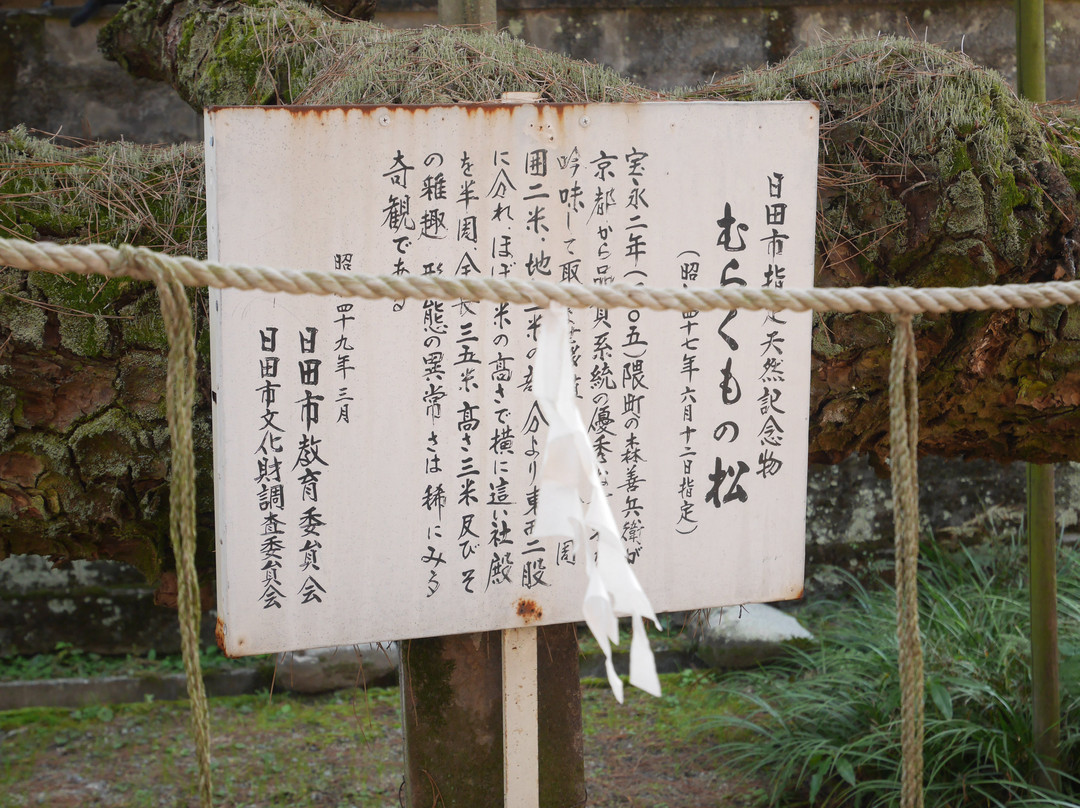 日田市指定天然記念物
むらくもの松
(昭 四十七年六月十二日指定)
宝永二年( 〇五)隈町の森善兵衛が
京都から 系統の優秀な
吟味して取 周
囲二米、地 二米の部分より東西二股
に分れ、ほぼ 米の高さで横に這い社殿
を半周、全長三五米高さ三米及びそ
の雅趣 形態の異常さは稀にみる
奇観である
昭 四十九年三月
日田市教育委員会
日田市文化財調査委員会